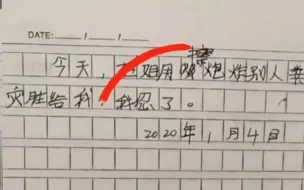 DATE: / /
今天,姐用擦炮难别人类
灾胜给我,我忍了。
2020年,1月4日